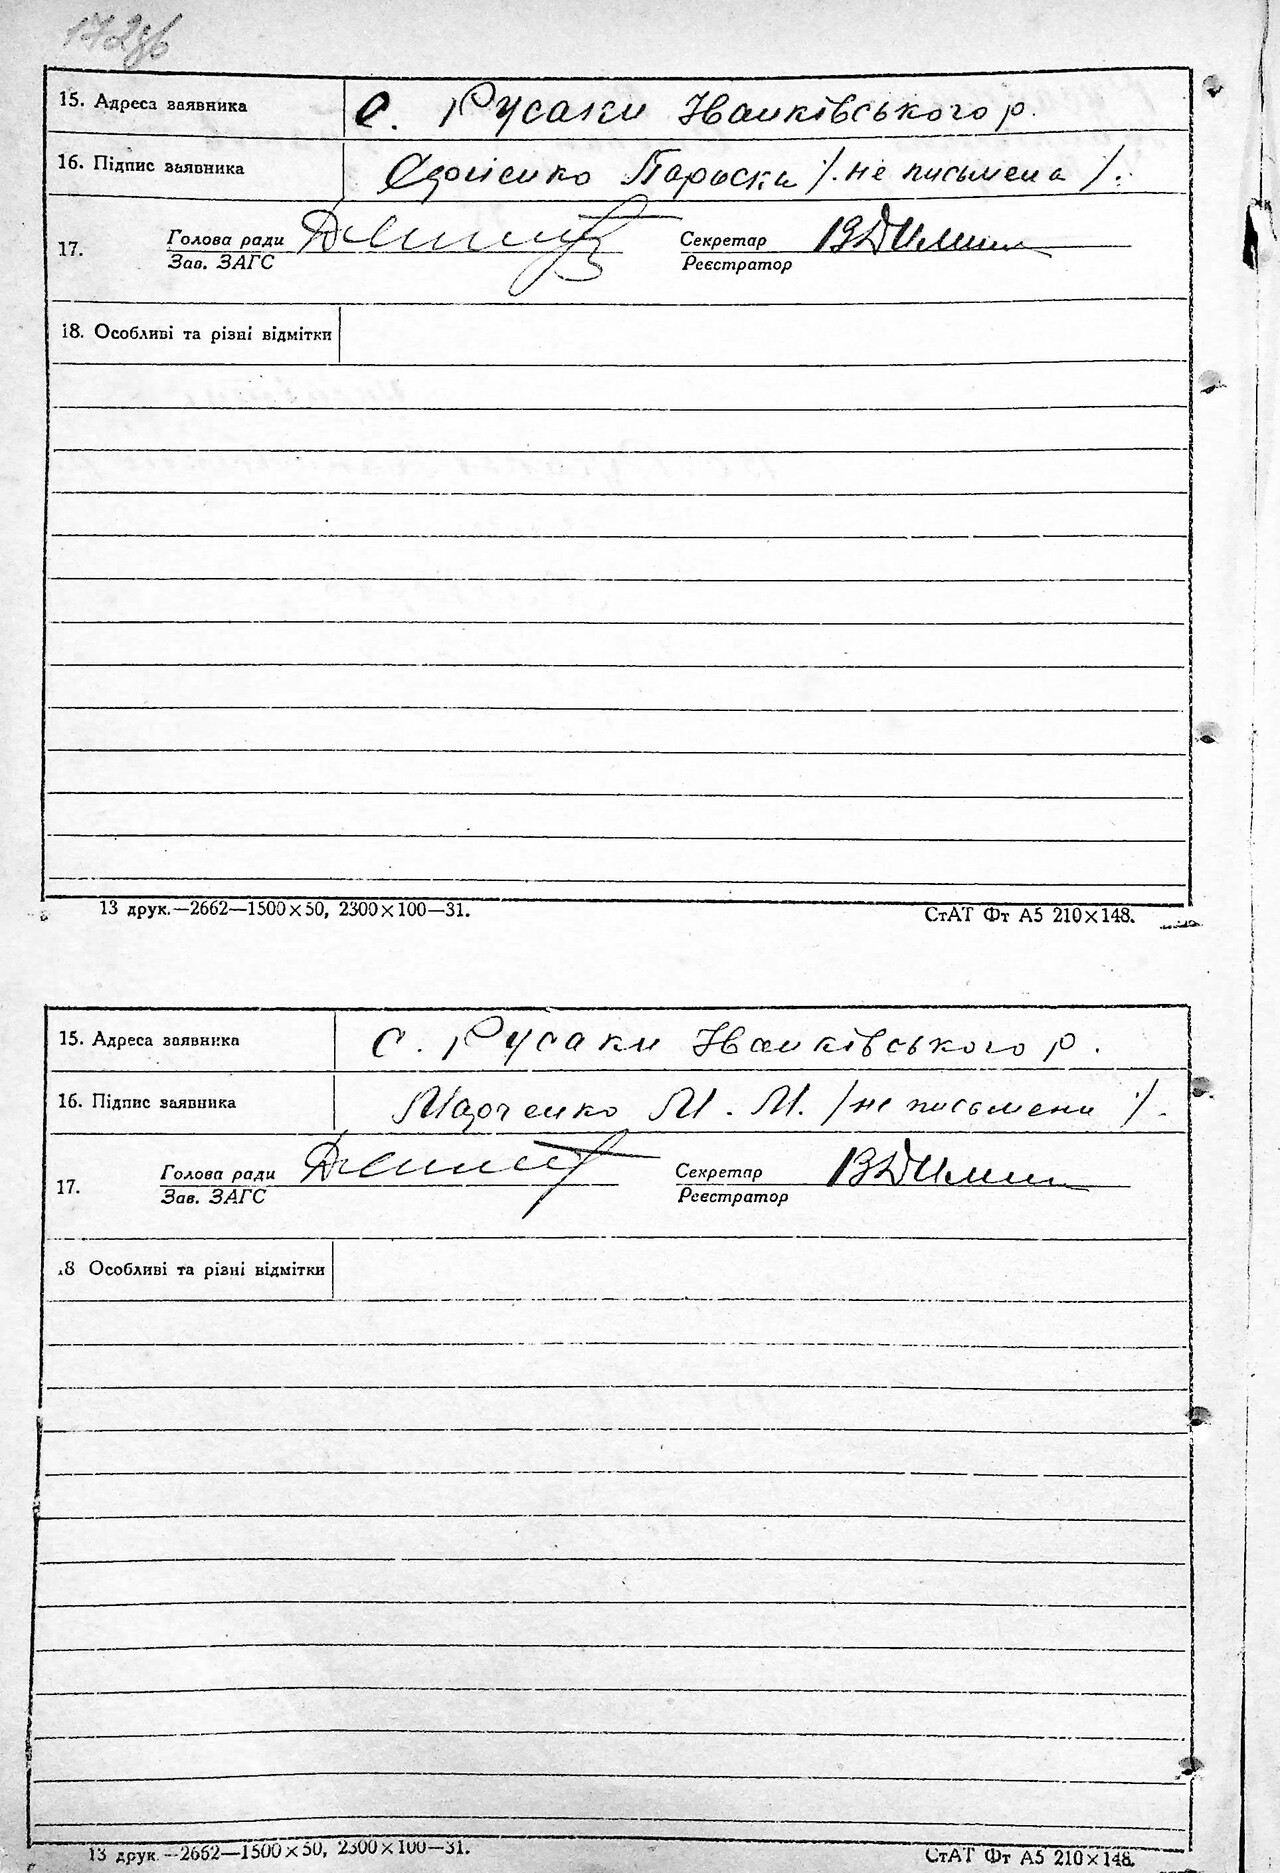 172зв
15. Адреса заявника с. Русаки Іванківського р.
16. Підпис заявника Параска /. не письмена /.
17. Голова ради Секретар
Зав. ЗАГС Реєстратор
18. Особливі та різні відмітки
13 друк.—2662—1500×50, 2300×100—31. СтАТ Фт А5 210×148.
15. Адреса заявника с. Русаки Іванківського р.
16. Підпис заявника М. М. /не письмени /.
17. Голова ради Секретар
Зав. ЗАГС Реєстратор
.8 Особливі та різні відмітки
13 друк.—2662—1500×50, 2300×100—31. СтАТ Фт А5 210×148.